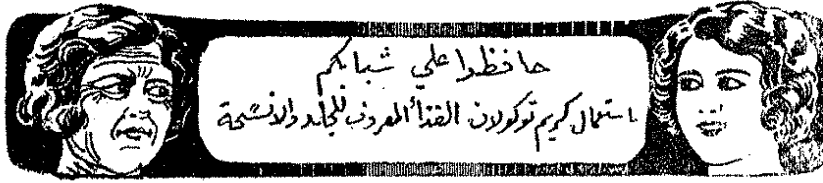 حافظوا علي شبابكم
باستعمال كريم توكولان الغذأ المعروف للجلد والانسجة